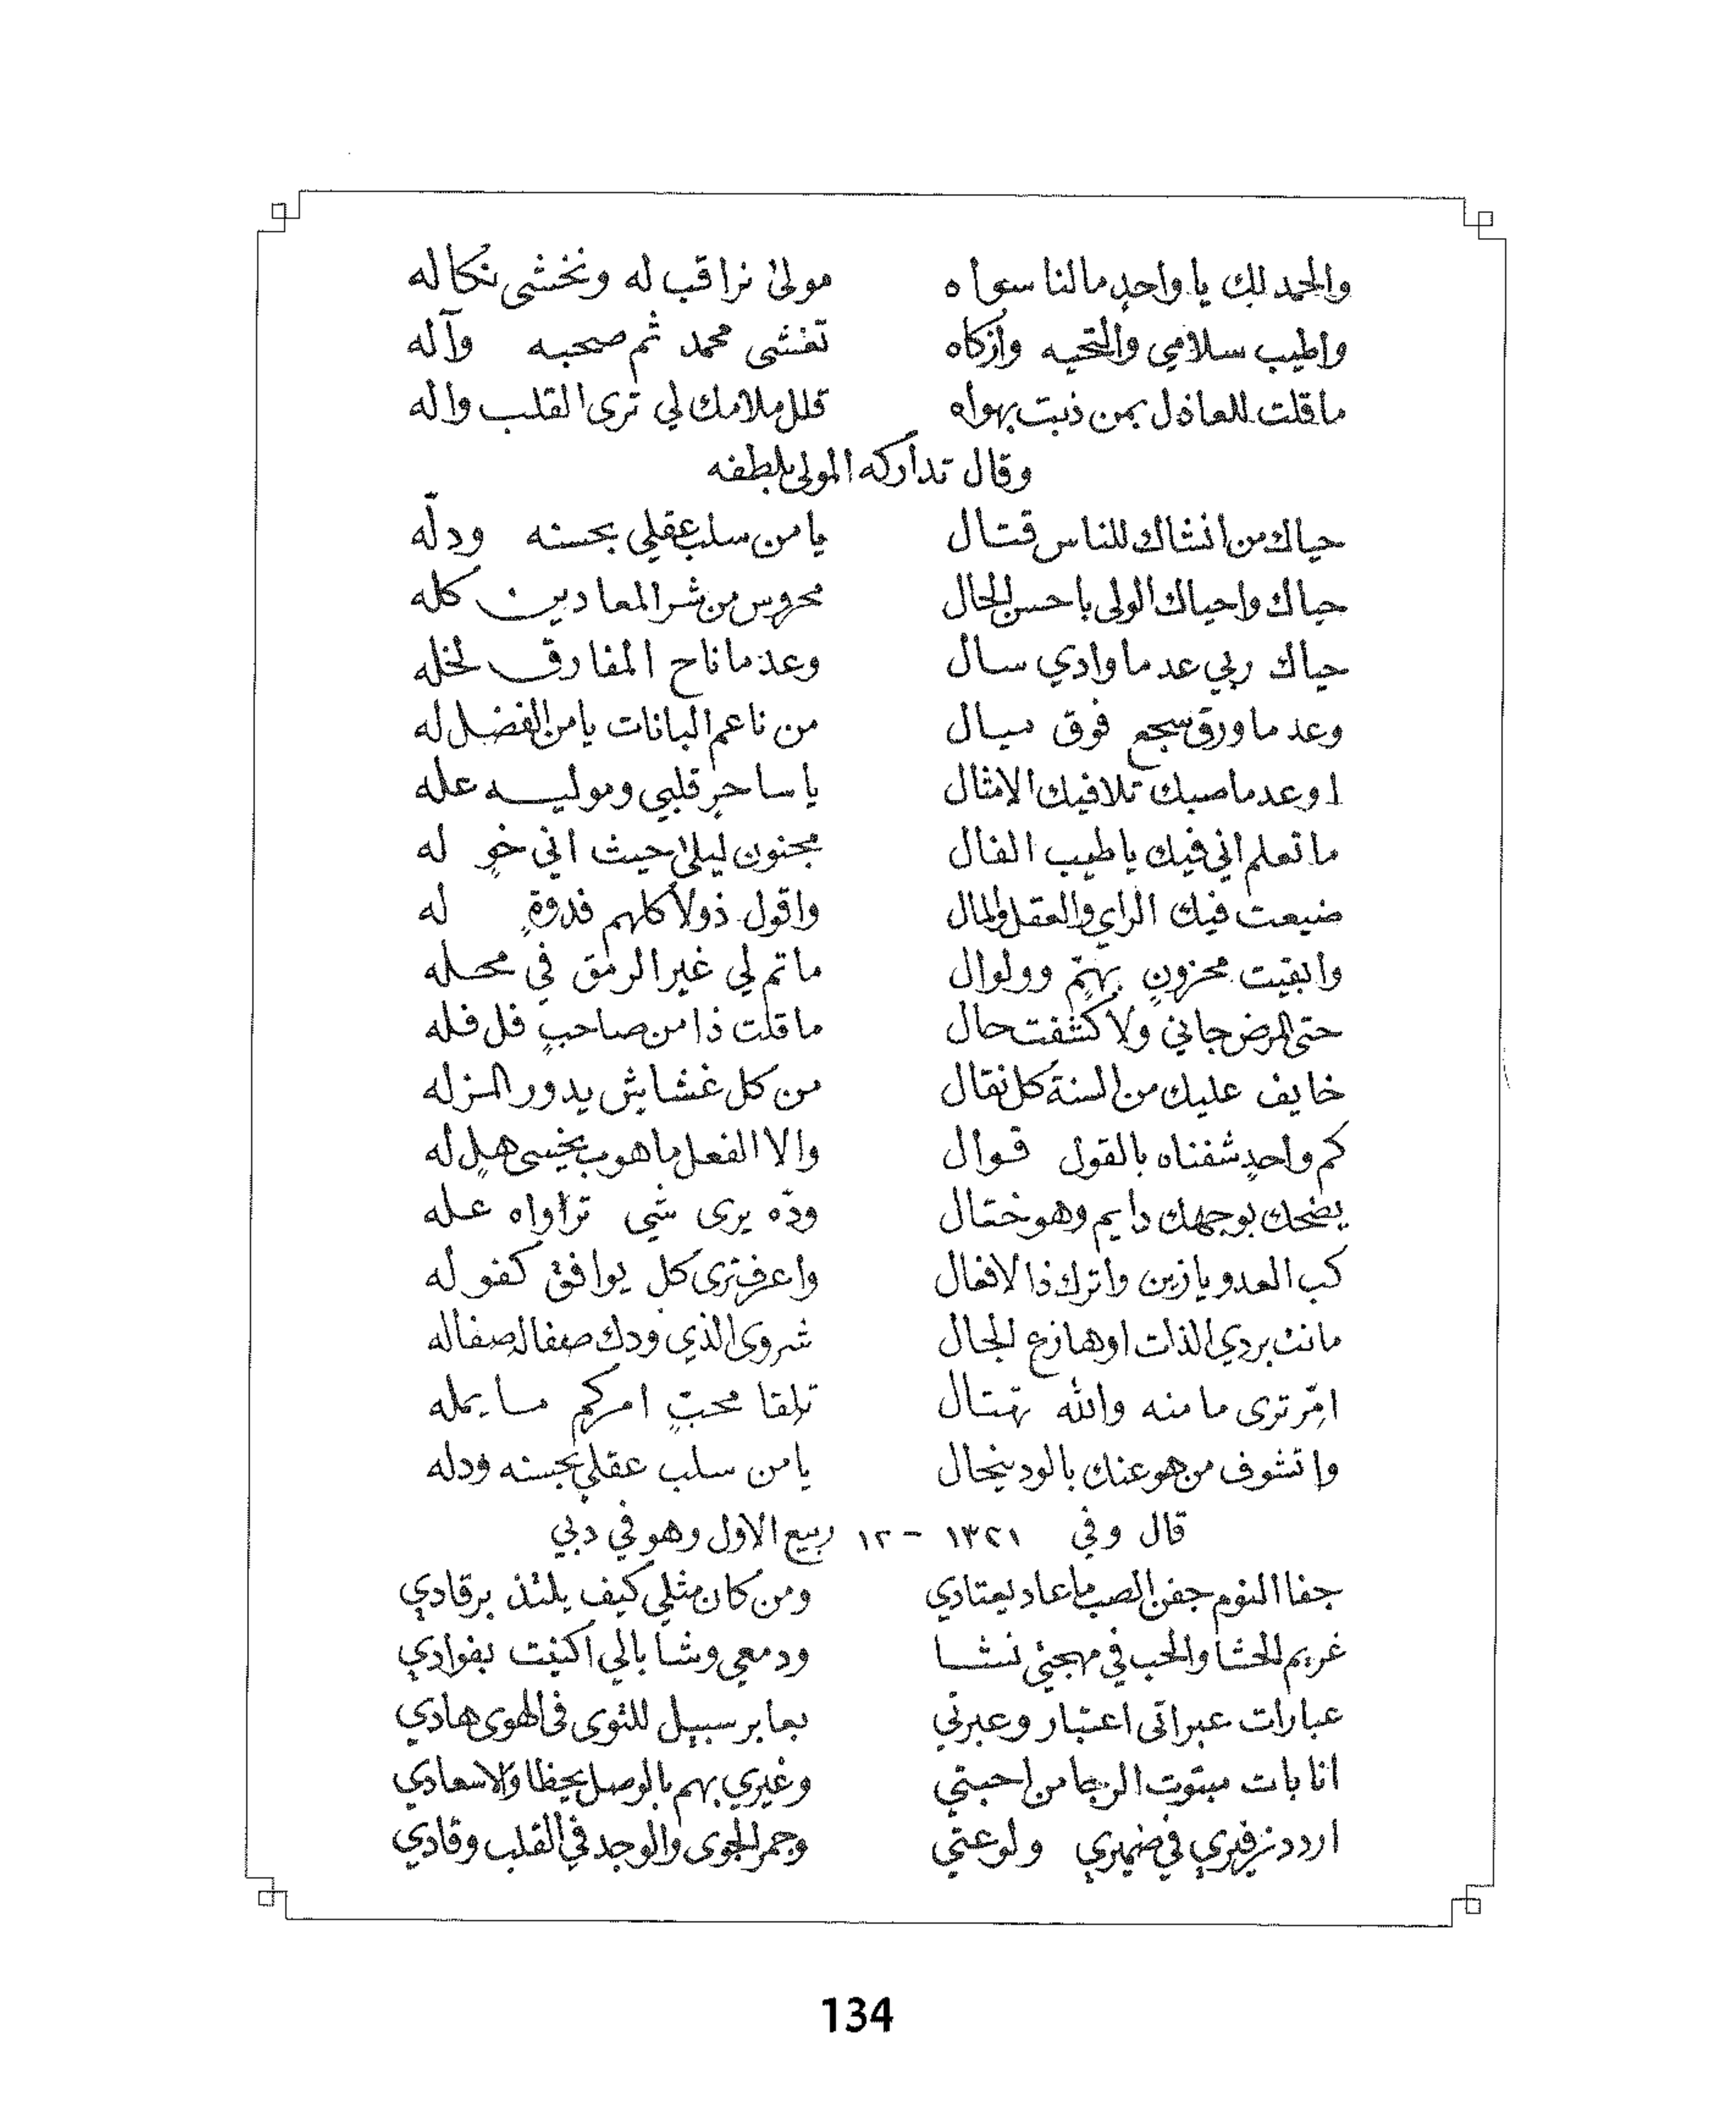 والحمد لك يا واحدٍ مالنا سواه مولىٰ نراقب له ونخشى نكاله
واطيب سلامي والتحيه وازكاه تغشى محمد ثم صحبه وآله
ما قلت للعاذل بمن ذبت بهواه قلل ملامك لي ترى القلب واله
وقال تداركه المولى بلطفه
حياك من انشاك للناس قتال يا من سلب عقلي بحسنه ودلّه
حياك واحياك الولى يا حسن الحال محروس من شر المعادين كله
حياك ربي عد ما وادي سال وعد ما ناح المفارق لخله
وعد ما ورق سجع فوق ميال من ناعم البانات يا من الفضل له
او عد ما صبك تلافيك الامثال يا ساحرٍ قلبي وموليه عله
ما تعلم اني فيك يا طيب الفال مجنون ليلىٰ حيث اني خوٍ له
ضيعت فيك الراي والعقل والمال واقول ذولا كلهم فدوةٍ له
وابقيت محزونٍ بهمٍّ وولوال ما تم لي غير الرمق في محله
حتى المرض جاني ولا كشفت حال ما قلت ذا من صاحبٍ فل فله
خايف عليك من السنة كل نقال من كل غشايش يدور المزله
كم واحدٍ شفناه بالقول قوال والا الفعل ما هوب بخيسى هلٍ له
يضحك بوجهك دايم وهو ختال ودّه يرى شي تراواه عله
كب العدو يا زين واترك ذا الافعال واعرف ترى كل يوافق كفو له
مانت بردي الذات اوهازع الجال شروى الذي ودك صفا له صفا له
امّر ترى ما منه والله تهتال تلقا محبٍّ امركم ما يمله
واتشوف من هو عنك بالود ينجال يا من سلب عقلي بحسنه ودله
قال وفي ١٣٢١ - ١٢ ربيع الاول وهو في دبي
جفا النوم جفن الصب ما عاد يعتادي ومن كان مثلي كيف يلتذ برقادي
غريم للحشا والحب في مهجتي نشا ودمعي وشا بالي اكنفت بفوادي
عبارات عبراتى اعتبار وعبرتي بعابر سبيل للنوى فى الهوى هادي
انا بات مبتوت الرجا من احبتي وغيري بهم بالوصل يحظا والاسعادي
اردد زفيري في ضميري ولوعتي وجمر الجوى والوجد في القلب وقادي
134